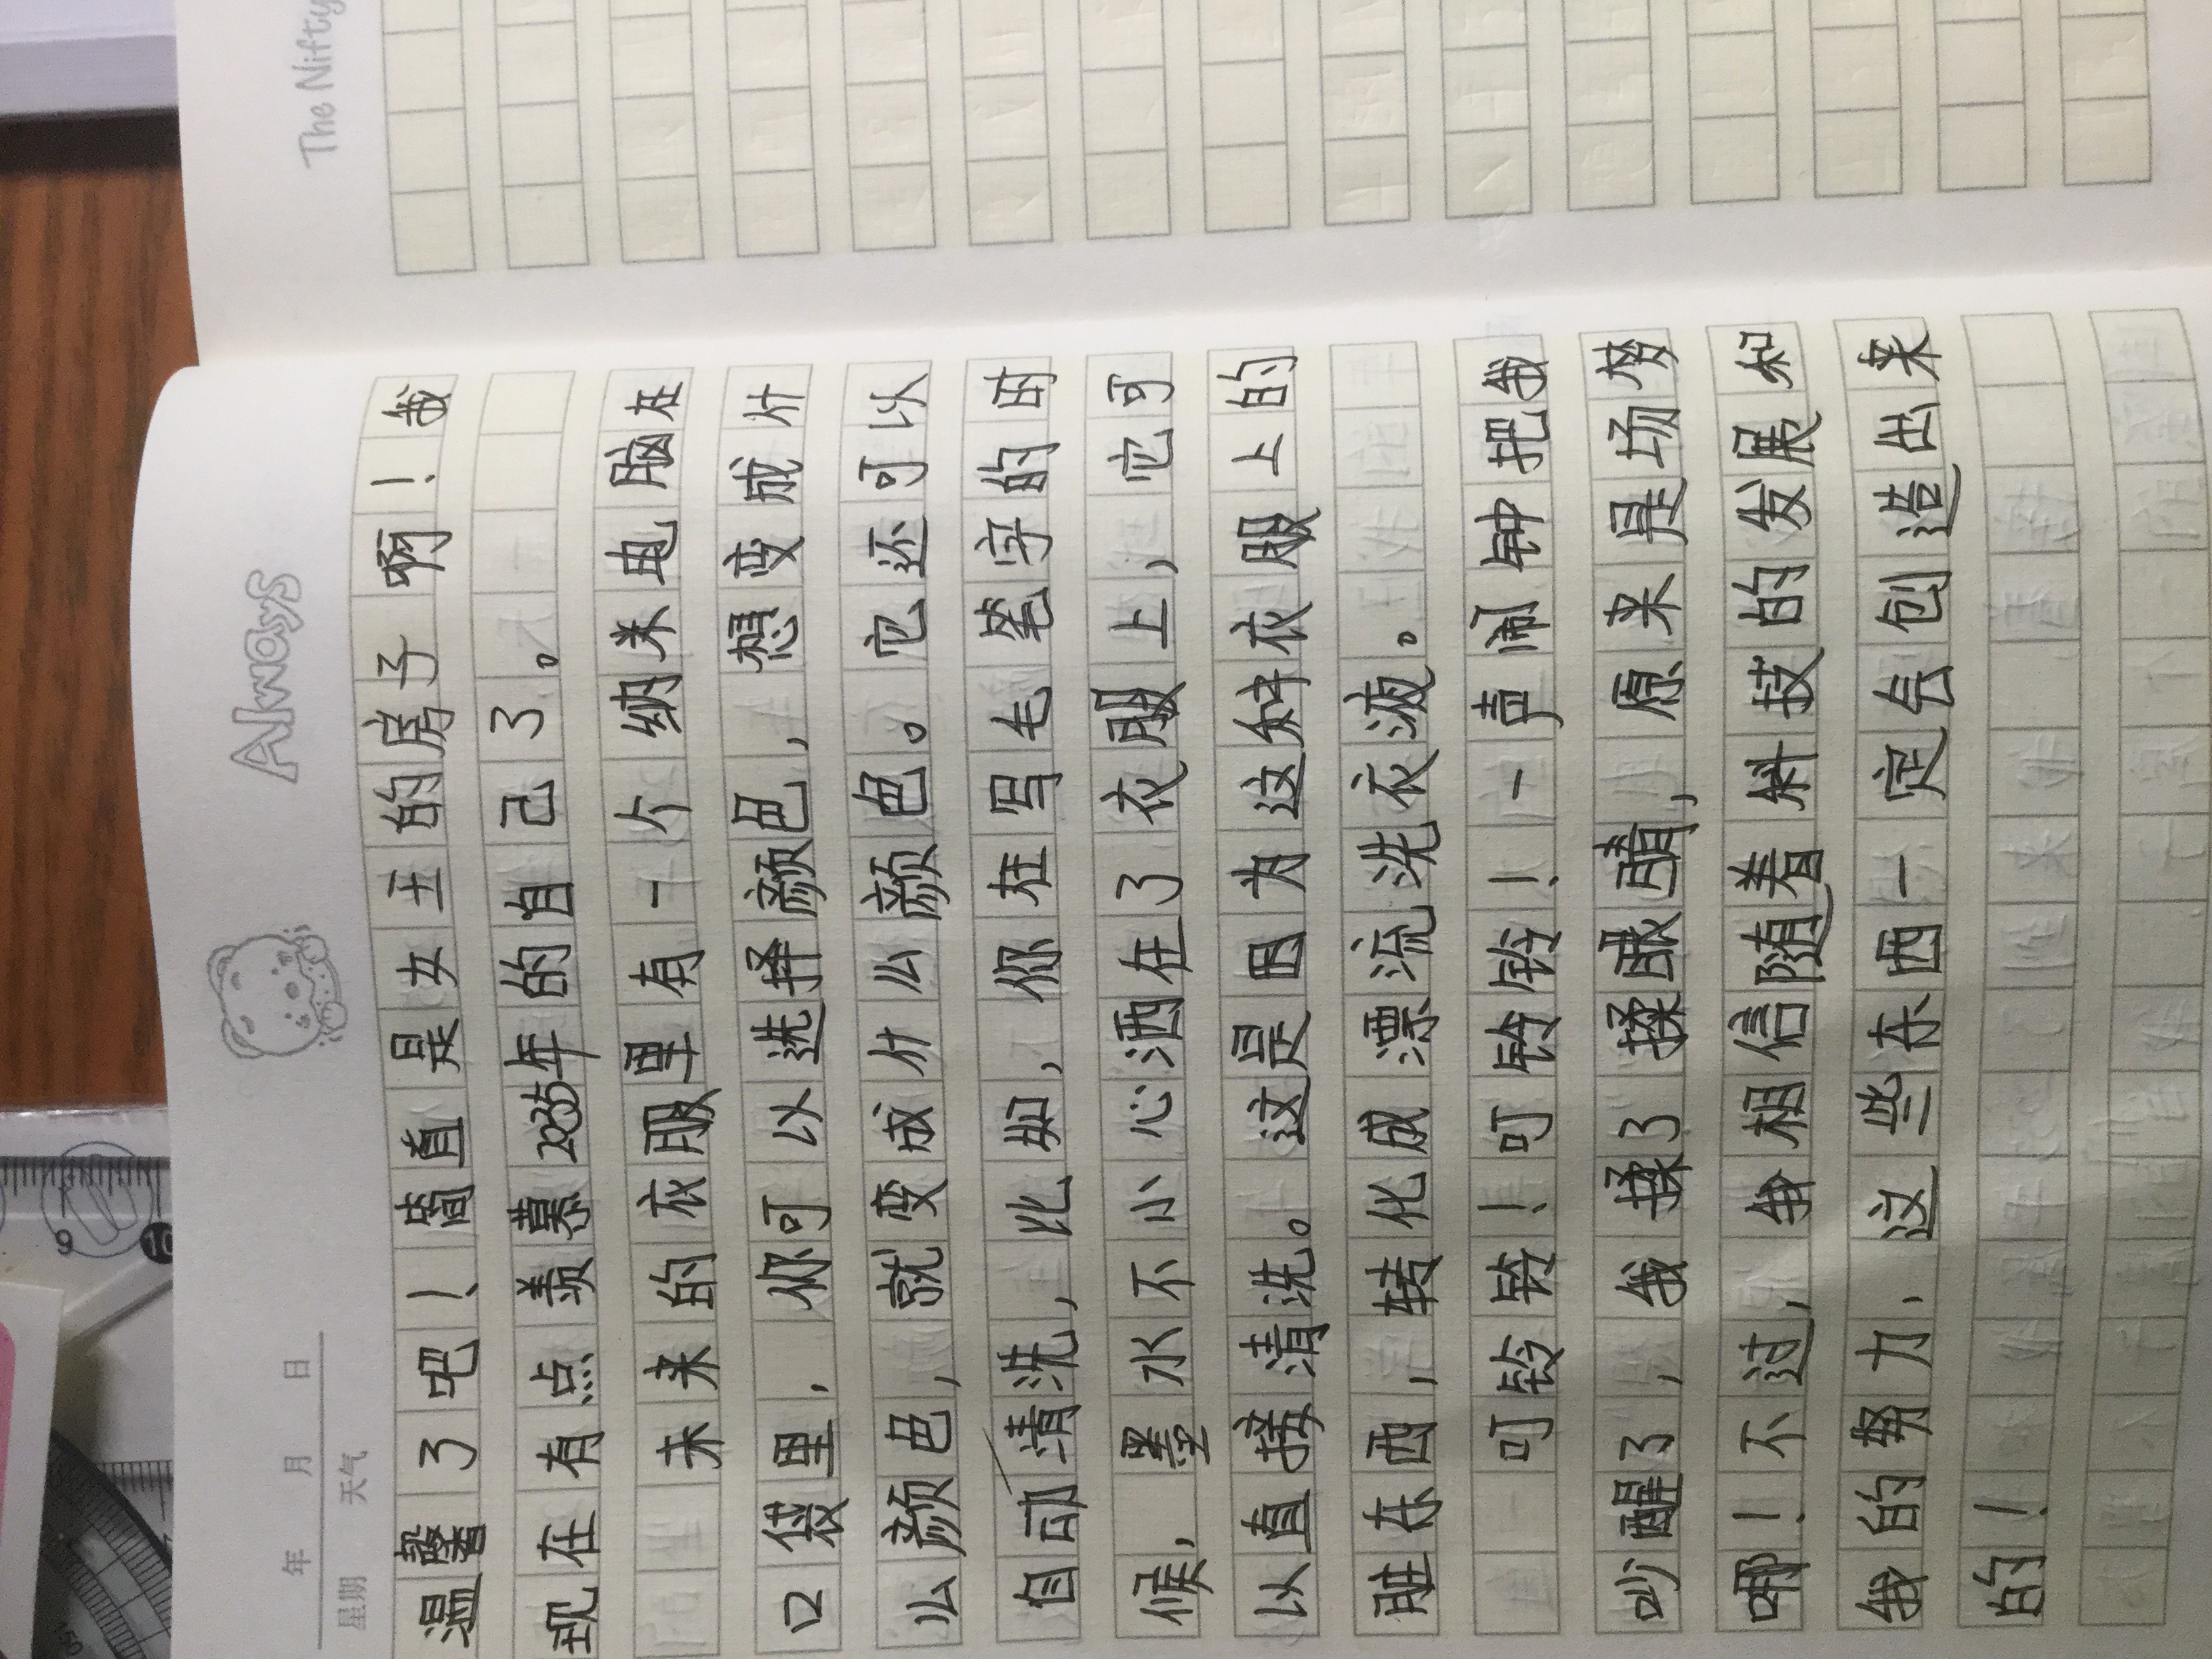 The Nifty
Always
年 月 日
星期 天气
温馨了吧！简直是女王的房子啊！我
现在有点羡慕2035年的自己了。
未来的衣服里有一个纳米电脑在
口袋里，你可以选择颜色，想变成什
么颜色，就变成什么颜色。它还可以
自动清洗，比如，你在写毛笔字的时
候，墨水不小心洒在了衣服上，它可
以直接清洗。这是因为这种衣服上的
脏东西，转化成漂流洗衣液。
叮铃铃！叮铃铃！一声闹钟把我
吵醒了，我揉了揉眼睛，原来是场梦
哪！不过，我相信随着科技的发展和
我的努力，这些东西一定会创造出来
的！
9
10
150